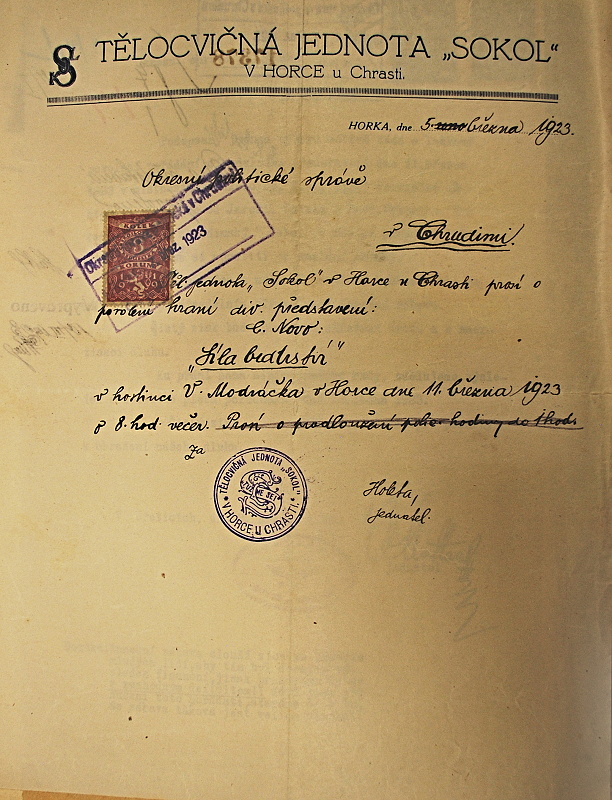 TĚLOCVIČNÁ JEDNOTA „SOKOL“
V HORCE u Chrasti.
HORKA, dne 5. března 1923.
Okresní politické správě
v Chrudimi.
Okresní v Chrudimi
1923
Těl. jednota „Sokol“ v Horce u Chrasti prosí o
povolení hraní div. představení:
E. Novo:
„Síla bratrství“
v hostinci V. Modráčka v Horce dne 11. března 1923
o 8. hod večer. Prosí o prodloužení polic. hodiny do 1 hod.
Za
TĚLOCVIČNÁ JEDNOTA „SOKOL“
V HORCE U CHRASTI.
Holeta,
jednatel.